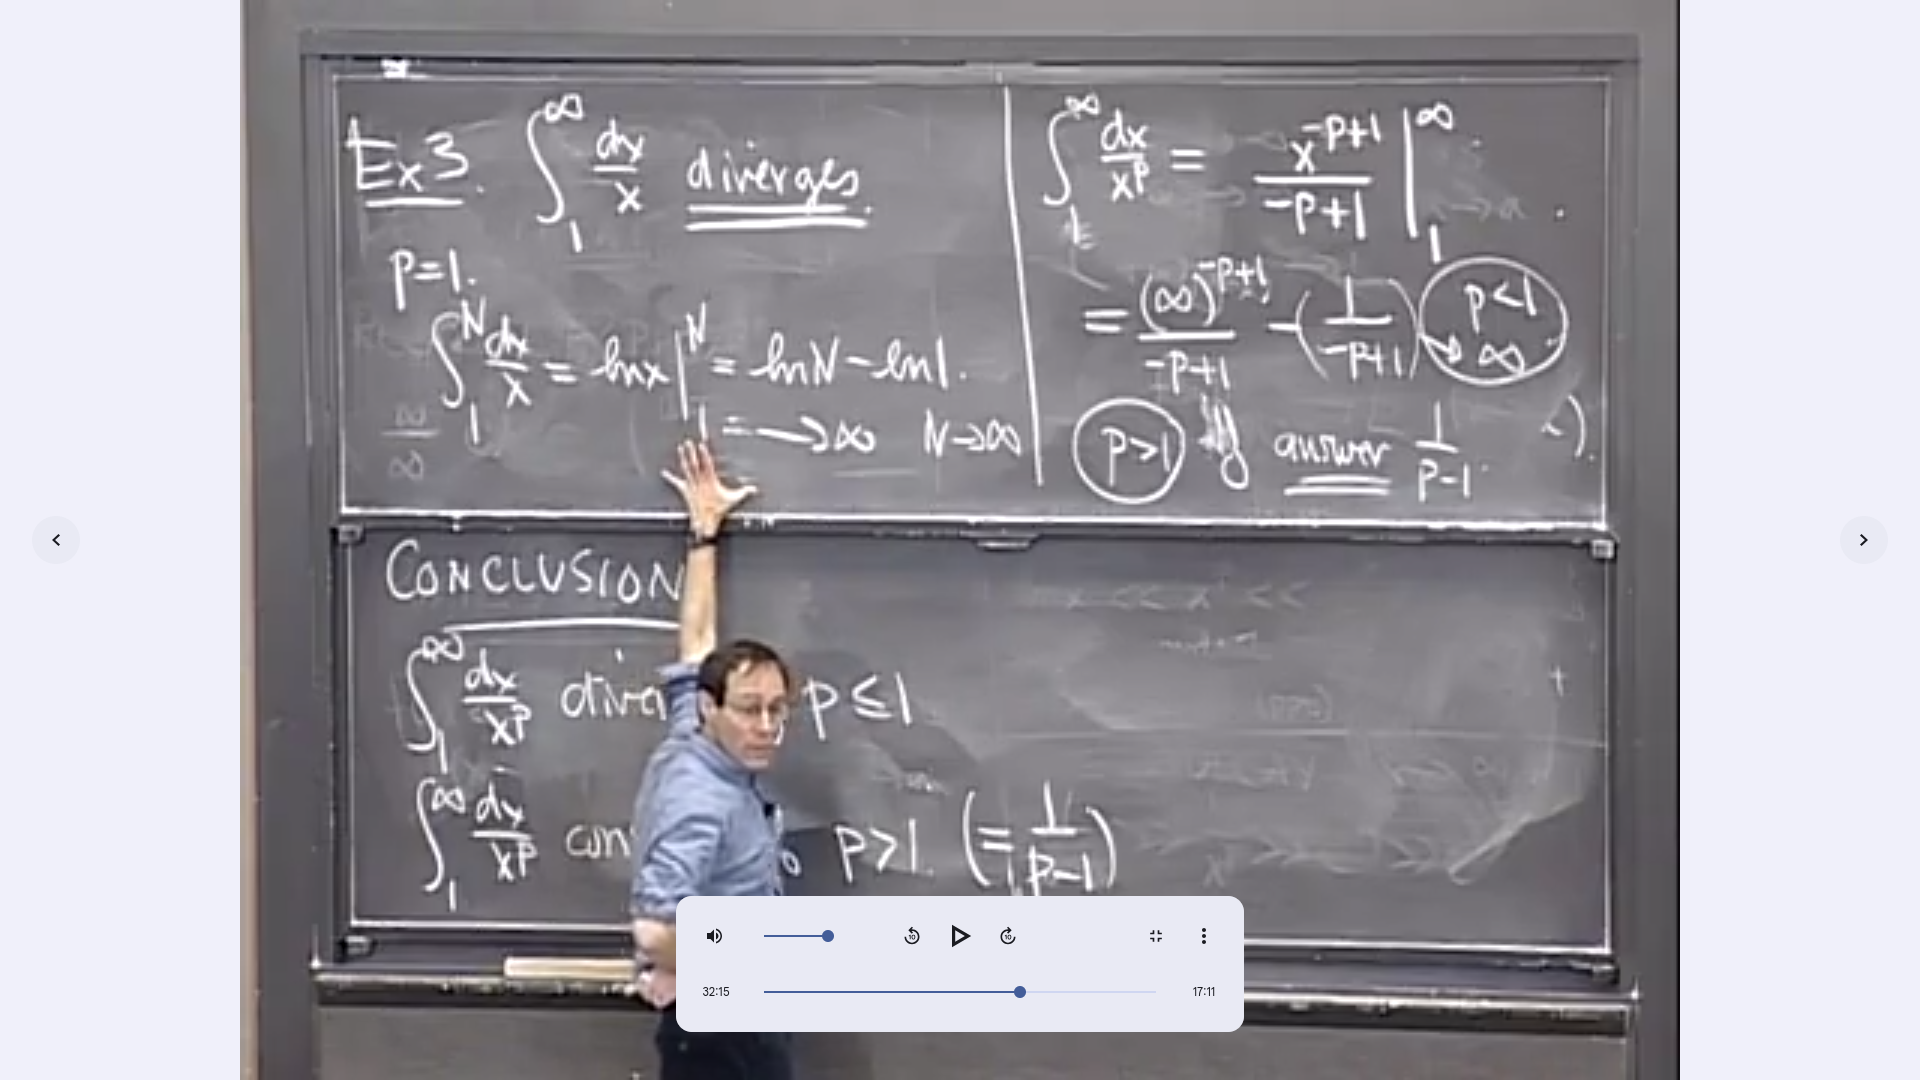 Ex3. ∫₁^∞ dx/x diverges.
p=1.
∫₁^N dx/x = ln x |₁^N = ln N - ln 1.
= → ∞ N→∞
∞/∞
∫₁^∞ dx/x^p = x^(-p+1)/(-p+1) |₁^∞
= (∞)^(-p+1)/(-p+1) - (1/(-p+1)) p<1 → ∞
p>1 answer 1/(p-1)
CONCLUSION
∫₁^∞ dx/x^p p ≤ 1
∫₁^∞ dx/x^p p>1. (= 1/(p-1))
32:15
17:11